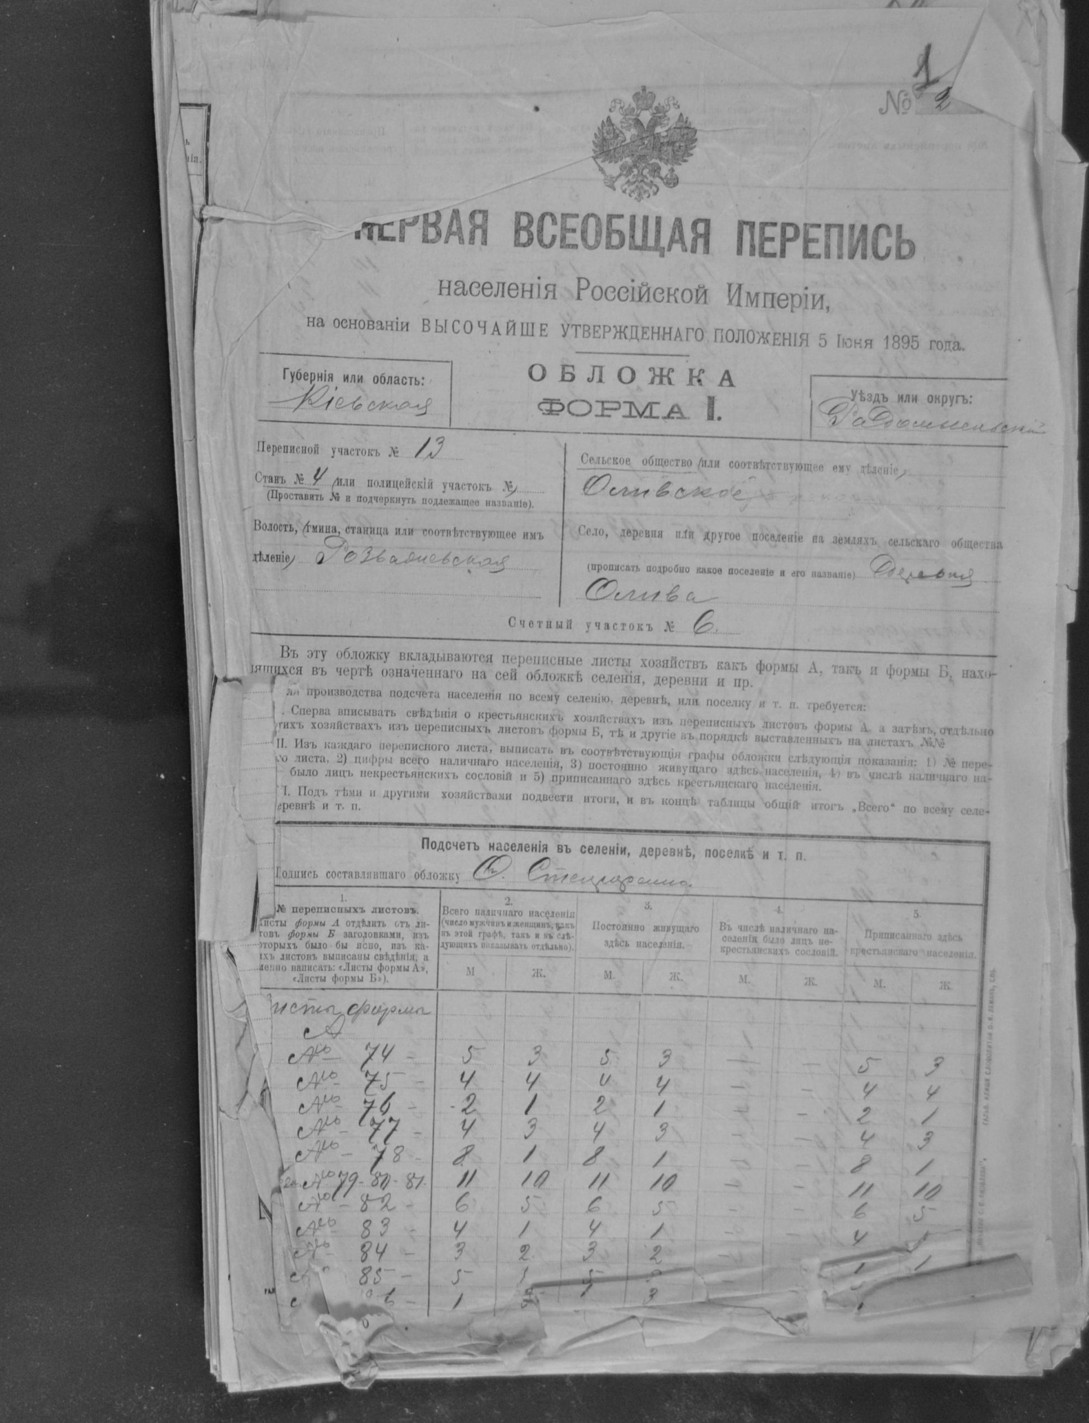 1
№ 2
ПЕРВАЯ ВСЕОБЩАЯ ПЕРЕПИСЬ
населенія Россійской Имперіи,
на основаніи ВЫСОЧАЙШЕ УТВЕРЖДЕННАГО ПОЛОЖЕНІЯ 5 Іюня 1895 года.
Губернія или область:
Кіевская
ОБЛОЖКА
ФОРМА I.
Уѣздъ или округъ:
Радомысльскій
Переписной участокъ № 13
Станъ № 4 (или полицейскій участокъ №)
(Проставить № и подчеркнуть подлежащее названіе).
Волость, (гмина, станица или соотвѣтствующее имъ
дѣленіе) Розважевская
Сельское общество (или соотвѣтствующее ему дѣленіе)
Оливское
Село, деревня или другое поселеніе на земляхъ сельскаго общества
(прописать подробно какое поселеніе и его названіе) Деревня
Олива
Счетный участокъ № 6.
Въ эту обложку вкладываются переписные листы хозяйствъ какъ формы А, такъ и формы Б, нахо-
дящихся въ чертѣ означеннаго на сей обложкѣ селенія, деревни и пр.
производства подсчета населенія по всему селенію, деревнѣ, или поселку и т. п. требуется:
Сперва вписывать свѣдѣнія о крестьянскихъ хозяйствахъ изъ переписныхъ листовъ формы А, а затѣмъ, отдѣльно
хозяйствахъ изъ переписныхъ листовъ формы Б, тѣ и другіе въ порядкѣ выставленныхъ на листахъ №№
II. Изъ каждаго переписного листа, выписать въ соотвѣтствующія графы обложки слѣдующія показанія: 1) № пере-
листа, 2) цифры всего наличнаго населенія, 3) постоянно живущаго здѣсь населенія, 4) въ числѣ наличнаго на-
было лицъ некрестьянскихъ сословій и 5) приписаннаго здѣсь крестьянскаго населенія.
I. Подъ тѣми и другими хозяйствами подвести итоги, и въ концѣ таблицы общій итогъ „Всего“ по всему селе-
деревнѣ и т. п.
Подсчетъ населенія въ селеніи, деревнѣ, поселкѣ и т. п.
Подпись составлявшаго обложку
1.
№ переписныхъ листовъ.
Листы формы А отдѣлить отъ ли-
товъ формы Б заголовками, изъ
которыхъ было бы ясно, изъ ка-
ихъ листовъ выписаны свѣдѣнія, а
менно написать: «Листы формы А»,
«Листы формы Б»).
2.
Всего наличнаго населенія
(число мужчинъ и женщинъ, какъ
въ этой графѣ, такъ и въ слѣ-
дующихъ показывать отдѣльно).
М Ж.
3.
Постоянно живущаго
здѣсь населенія.
М. Ж.
4.
Въ числѣ наличнаго на-
селенія было лицъ не-
крестьянскихъ сословій.
М. Ж.
5.
Приписаннаго здѣсь
крестьянскаго населенія.
М. Ж.
Листы формы
А
№ 74 - 5 3 5 3 - - 5 3
№ 75 - 4 4 4 4 - - 4 4
№ 76 - 2 1 2 1 - - 2 1
№ 77 - 4 3 4 3 - - 4 3
№ 78 - 8 1 8 1 - - 8 1
№ 79-80-81 11 10 11 10 - - 11 10
№ 82 - 6 5 6 5 - - 6 5
№ 83 - 4 1 4 1 - - 4
№ 84 - 3 2 3 2
85 - 5 1 5
6 - 1 3